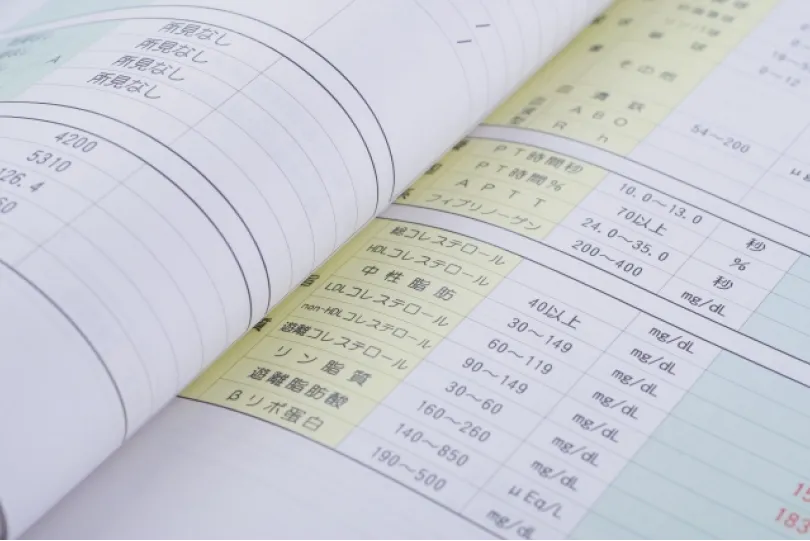 所見なし
所見なし
所見なし
所見なし
A
4200
5310
26.4
60
球
その他
血清鉄 54～200 μg
ABO
Rh
PT時間秒 10.0～13.0 秒
PT時間% 70以上 %
APTT 24.0～35.0 秒
フィブリノーゲン 200～400 mg/dL
総コレステロール
HDLコレステロール 40以上 mg/dL
中性脂肪 30～149 mg/dL
LDLコレステロール 60～119 mg/dL
non-HDLコレステロール 90～149 mg/dL
遊離コレステロール 30～60 mg/dL
リン脂質 160～260 mg/dL
遊離脂肪酸 140～850 μEq/L
βリポ蛋白 190～500 mg/dL
質
15
183